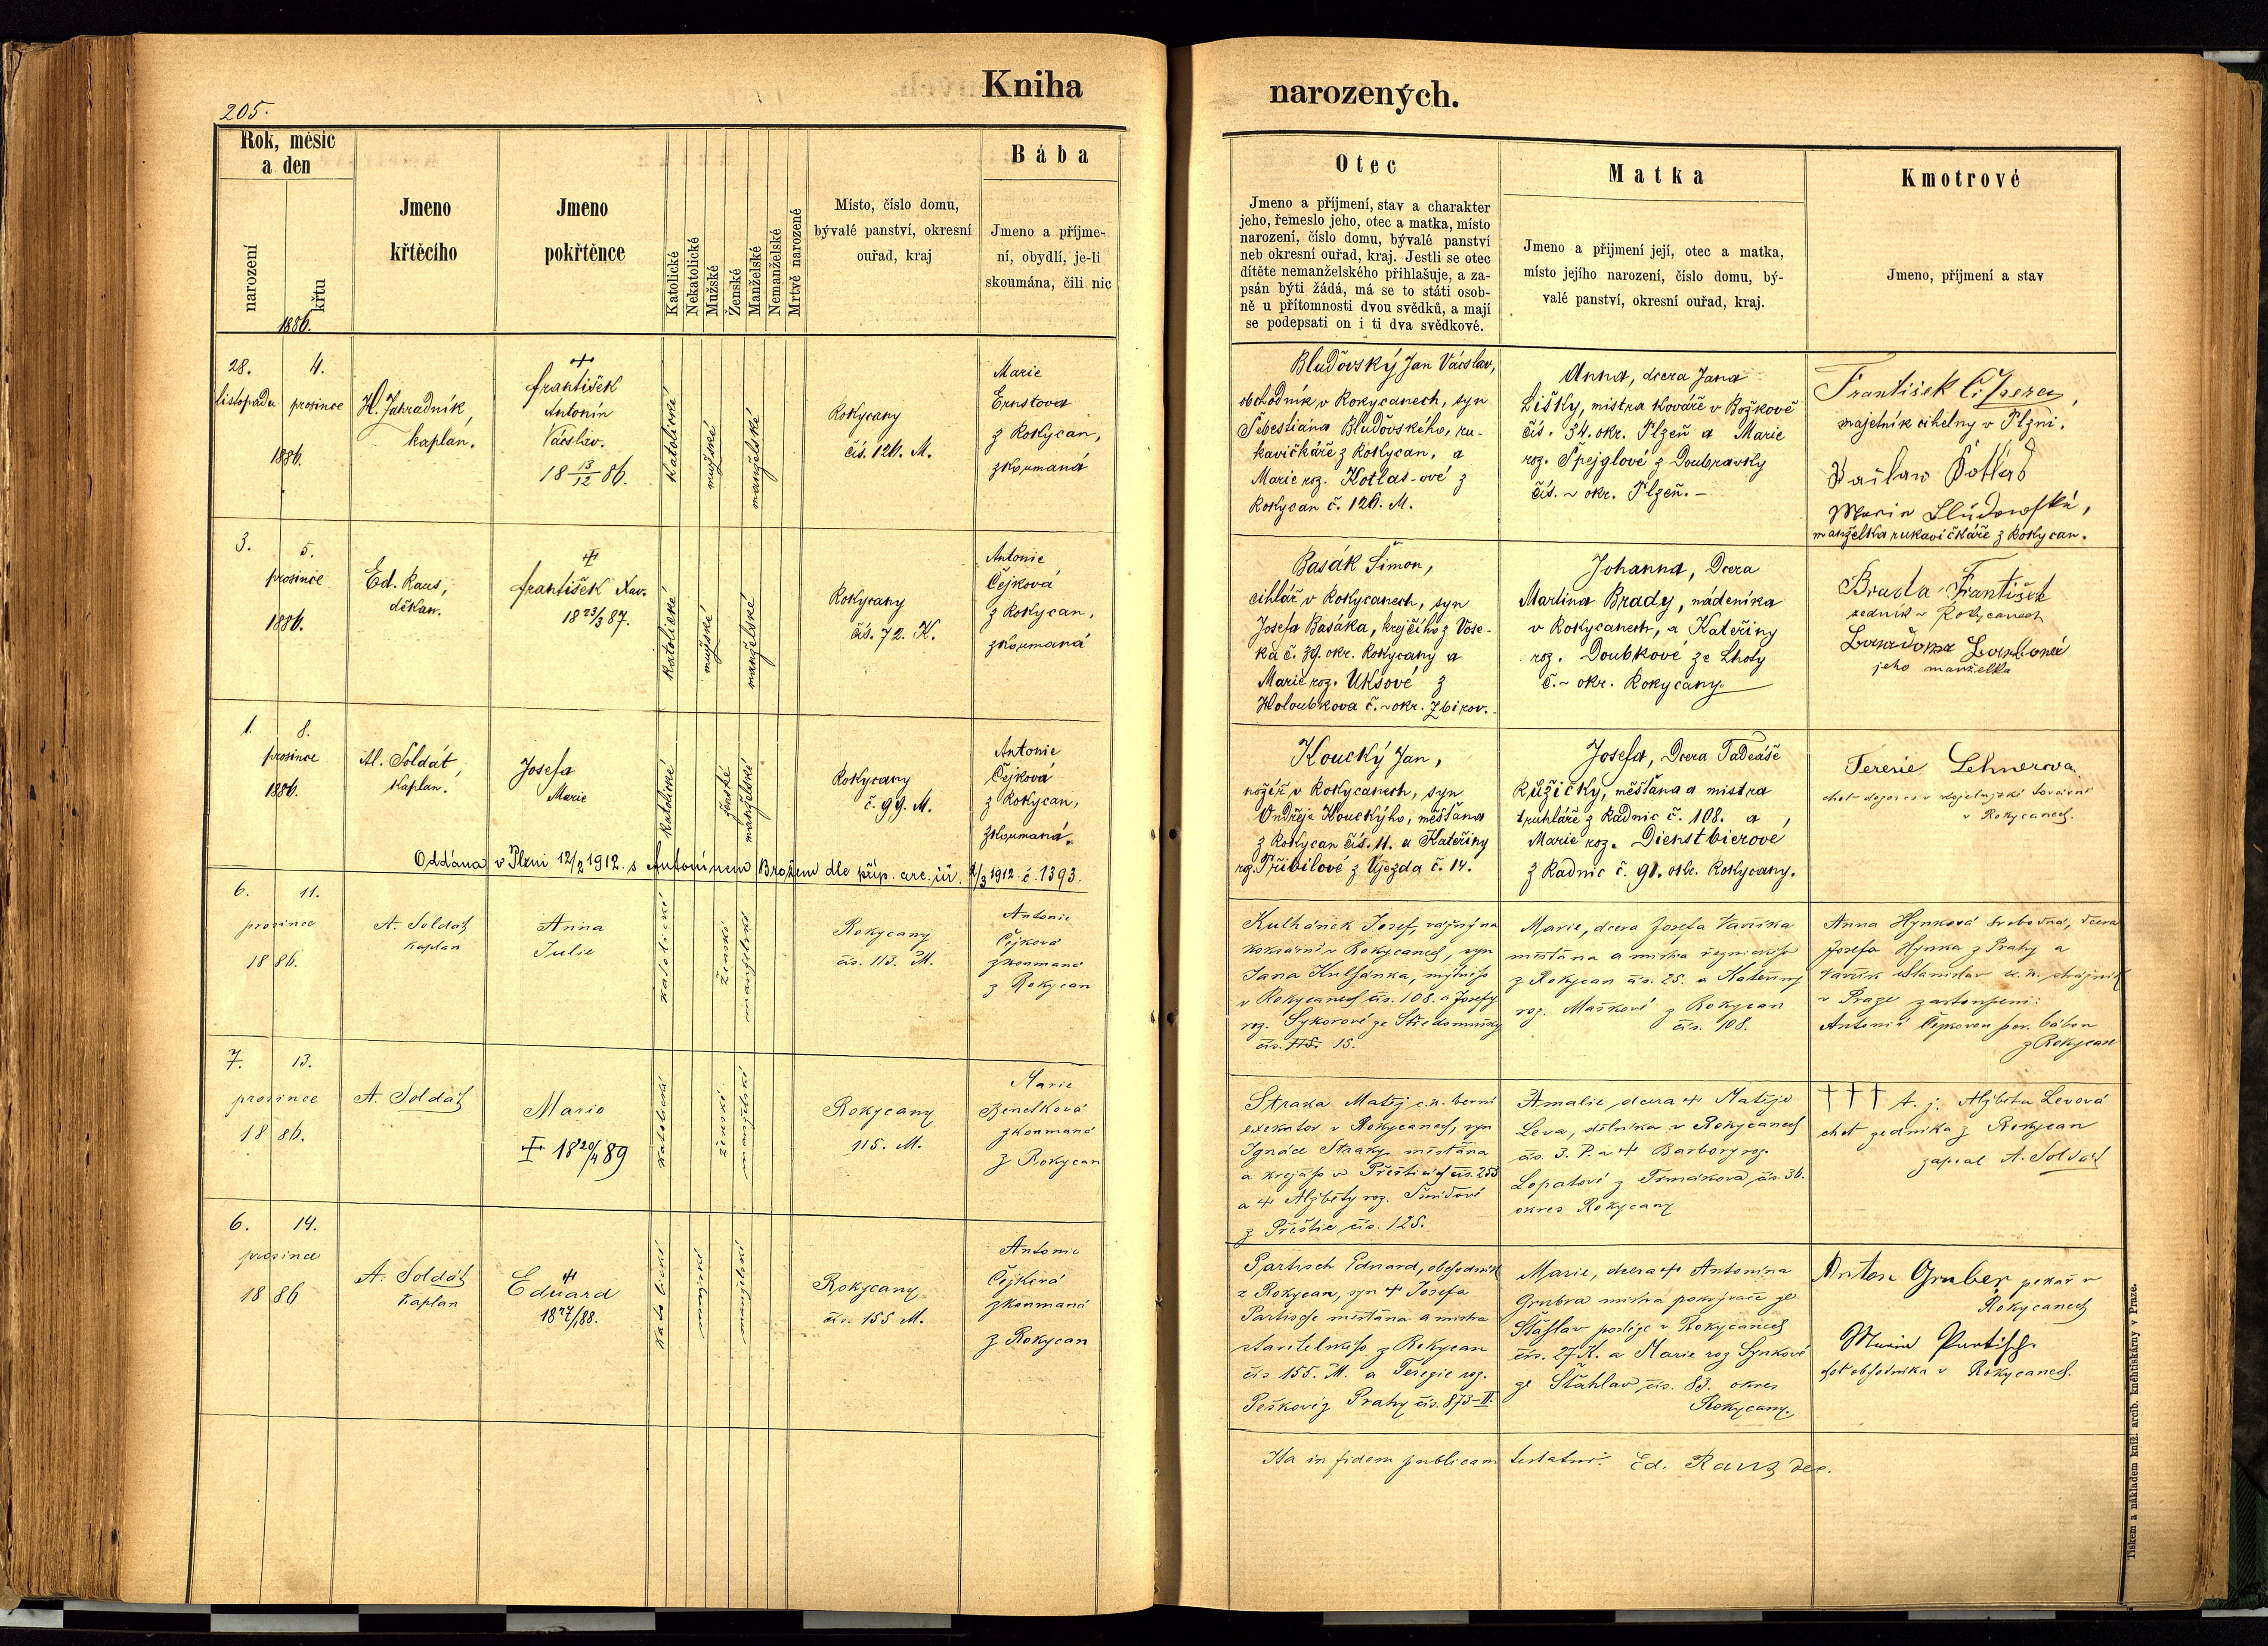 Kniha
narozených.
205.
Rok, měsíc
a den
narození
křtu
1886.
Jmeno
křtěcího
Jmeno
pokřtěnce
Katolické
Nekatolické
Mužské
Ženské
Manželské
Nemanželské
Mrtvě narozené
Místo, číslo domu,
bývalé panství, okresní
ouřad, kraj
Bába
Jmeno a příjme-
ní, obydlí, je-li
skoumána, čili nic
Otec
Jmeno a příjmení, stav a charakter
jeho, řemeslo jeho, otec a matka, místo
narození, číslo domu, bývalé panství
neb okresní ouřad, kraj. Jestli se otec
dítěte nemanželského přihlašuje, a za-
psán býti žádá, má se to státi osob-
ně u přítomnosti dvou svědků, a mají
se podepsati on i ti dva svědkové.
Matka
Jmeno a přijmení její, otec a matka,
místo jejího narození, číslo domu, bý-
valé panství, okresní ouřad, kraj.
Kmotrové
Jmeno, příjmení a stav
28. 4.
listopadu prosince
1886.
H. Zahradník,
kaplan.
František
Antonín
Václav.
18 13/12 86.
katolické
mužské
manželské
Rokycany
čís. 126. M.
Marie
Ernstova
z Rokycan,
zkoumaná
Bluďovský Jan Václav,
obchodník v Rokycanech, syn
Šebestiana Bluďovského, ru-
kavičkáře z Rokycan, a
Marie roz. Kotlas-ové z
Rokycan č. 126. M.
Anna, dcera Jana
Lišky, mistra kováře v Božkově
čís. 34. okr. Plzeň a Marie
roz. Špejglové z Doubravky
čís. ~ okr. Plzeň. –
František
majetník cihelny v Plzni.
manželka rukavičkáře z Rokycan.
3. 5.
prosince
1886.
Ed. Raus,
děkan.
František Xav.
18 23/3 87.
katolické
mužské
manželské
Rokycany
čís. 72. K.
Antonie
Čejková
z Rokycan,
zkoumaná
Basák Šimon,
cihlář v Rokycanech, syn
Josefa Basáka, krejčího z Vose-
ka č. 39. okr. Rokycany a
Marie roz. Uksové z
Holoubkova č. ~ okr. Zbirov.
Johanna, Dcera
Martina Brady, nádeníka
v Rokycanech, a Kateřiny
roz. Doubkové ze Lhoty
č. ~ okr. Rokycany.
Brada František
zedník v Rokycanech
jeho manželka
1. 8.
prosince
1886.
Al. Soldát,
kaplan.
Josefa
Marie
katolické
ženské
manželské
Rokycany
č. 99. M.
Antonie
Čejková
z Rokycan,
zkoumaná.
Koucký Jan,
nožíř v Rokycanech, syn
Ondřeje Kouckýho, měšťana
z Rokycan čís. 11. a Kateřiny
roz. Přibilové z Újezda č. 14.
Josefa, Dcera Tadeáše
Růžičky, měšťana a mistra
truhláře z Radnic č. 108. a
Marie roz. Dienstbierové
z Radnic č. 91. okr. Rokycany.
Terezie Lehnerova
v Rokycanech.
Oddána v Plzni 12/2 1912. s Antonínem Brožem dle příp. arc. úř. 2/3 1912 č. 1393.
6. 11.
prosince
1886.
A. Soldát
kaplan
Anna
Julie
katolické
ženské
manželské
Rokycany
čís. 113. M.
Antonie
Čejková
zkoumaná
z Rokycan
Kulhánek Josef, vážný na
v Rokycanech, syn
Jana Kulhánka, mýtního
v Rokycanech čís. 108. a Josefy
roz. Sykorové ze
čís. 15.
Marie, dcera Josefa Vaříka
měštana a mistra řeznického
z Rokycan čís. 25. a Kateřiny
roz. Maškové z Rokycan
čís. 108.
Anna Hynková svobodná, dcera
Josefa Hynka z Prahy a
Vařík Stanislav c. k. strážník
v Praze zastoupeni:
Antonií Čejkovou por. bábou
z Rokycan
7. 13.
prosince
1886.
A. Soldát
Marie
18 20/4 89
katolické
ženské
manželské
Rokycany
115. M.
Marie
Benešková
zkoumaná
z Rokycan
Straka Matěj c. k. berní
exekutor v Rokycanech, syn
Ignáce Straky měštana
a krejčího v Přešticích čís. 253
a + Alžběty roz. Šmídové
z Přeštic čís. 125.
Amalie dcera + Matěje
Leva, dělníka v Rokycanech
čís. 3. P. a + Barbory roz.
Lopatové z čís. 36.
okres Rokycany
††† t. j. Alžběta Levová
choť zedníka z Rokycan
zapsal A. Soldát
6. 14.
prosince
1886
A. Soldát
kaplan
Eduard
18 27/1 88.
katolické
mužské
manželské
Rokycany
čís. 155 M.
Antonie
Čejková
zkoumaná
z Rokycan
Partisch Eduard, obchodník
z Rokycan, syn + Josefa
Partische měštana a mistra
stavitelského z Rokycan
čís 155. M. a Terezie roz.
Peškové z Prahy čís. 873–II.
Marie, dcera + Antonína
Grubra mistra pokrývače ze
Šťáhlav později v Rokycanech
čís. 27 K. a Marie roz Synkové
ze Šťáhlav čís. 83. okres
Rokycany.
Anton Gruber pekař v
Rokycanech
Marie Partisch
choť obchodníka v Rokycanech.
Ita in fidem publicam testatur. Ed. Raus dec.
Tiskem a nákladem kníž. arcib. knihtiskárny v Praze.